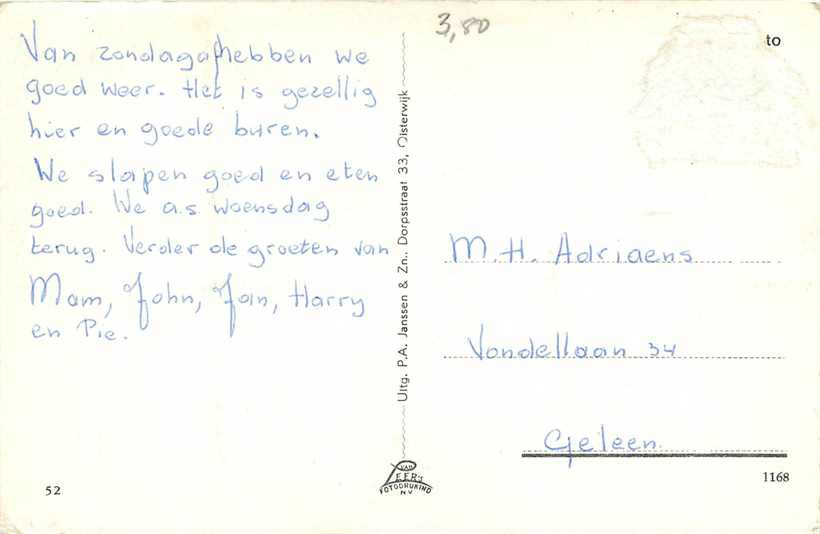 3,80
to
Van zondagaf hebben we
goed weer. Het is gezellig
hier en goede buren.
We slapen goed en eten
goed. We a.s. woensdag
terug. Verder de groeten van
Mam, John, Jan, Harry
en Pie.
Uitg. P.A. Janssen & Zn., Dorpsstraat 33, Oisterwijk
M. H. Adriaens
Vondellaan 34
Geleen
VAN
LEER'S
FOTODRUKIND
N.V.
52
1168